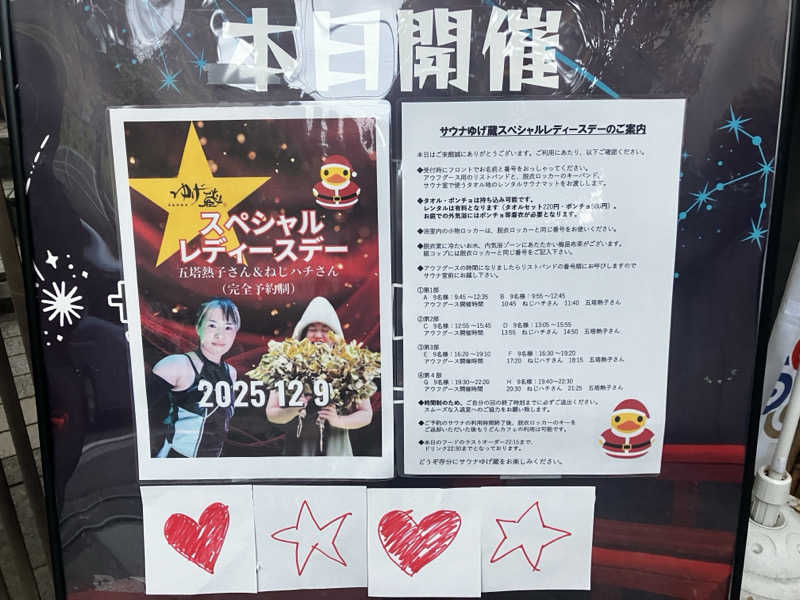 本日開催
ゆげ蔵
スペシャル
レディースデー
五塔熱子さん＆ねじハチさん
（完全予約制）
2025 12 9
サウナゆげ蔵スペシャルレディースデーのご案内
本日はご来館誠にありがとうございます。ご利用にあたり、以下ご確認ください。
◆受付時にフロントでお名前と番号をおっしゃってください。
アウフグース用のリストバンドと、脱衣ロッカーのキーバンド、
サウナ室で使うタオル地のレンタルサウナマットをお渡しします。
◆タオル・ポンチョは持ち込み可能です。
レンタルは有料となります（タオルセット220円・ポンチョ500円）。
お庭での外気浴にはポンチョ等着衣が必要となります。
◆浴室内の小物ロッカーは、脱衣ロッカーと同じ番号をお使いください。
◆脱衣室に冷たいお水、内気浴ゾーンにあたたかい梅昆布茶がございます。
紙コップには脱衣ロッカーと同じ番号をご記入下さい。
◆アウフグースの時間になりましたらリストバンドの番号順にお呼びしますので
サウナ室前にお越し下さい。
①第1部
A 9名様：9:45～12:35 B 9名様：9:55～12:45
アウフグース開催時間 10:45 ねじハチさん 11:40 五塔熱子さん
②第2部
C 9名様：12:55～15:45 D 9名様：13:05～15:55
アウフグース開催時間 13:55 ねじハチさん 14:50 五塔熱子さん
③第3部
E 9名様：16:20～19:10 F 9名様：16:30～19:20
アウフグース開催時間 17:20 ねじハチさん 18:15 五塔熱子さん
④第4部
G 9名様：19:30～22:20 H 9名様：19:40～22:30
アウフグース開催時間 20:30 ねじハチさん 21:25 五塔熱子さん
◆時間制のため、ご自分の回の終了時刻までに必ずご退出ください。
スムーズな入退室へのご協力をお願い致します。
◆ご予約のサウナの利用時間終了後、脱衣ロッカーのキーを
ご返却いただいた後もうどんカフェの利用は可能です。
◆本日のフードのラストオーダー22:15まで、
ドリンク22:30までとなっております。
どうぞ存分にサウナゆげ蔵をお楽しみください。